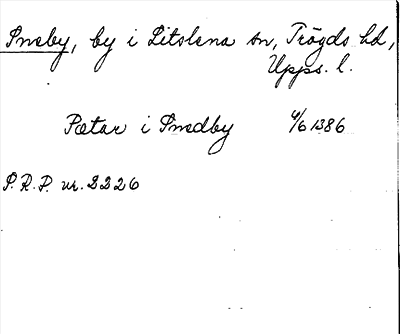 Smeby, by i Litslena sn, Trögds hd,
Upps. l.
Pætar i Smedby 9/6 1386
S.R.P. nr. 2226